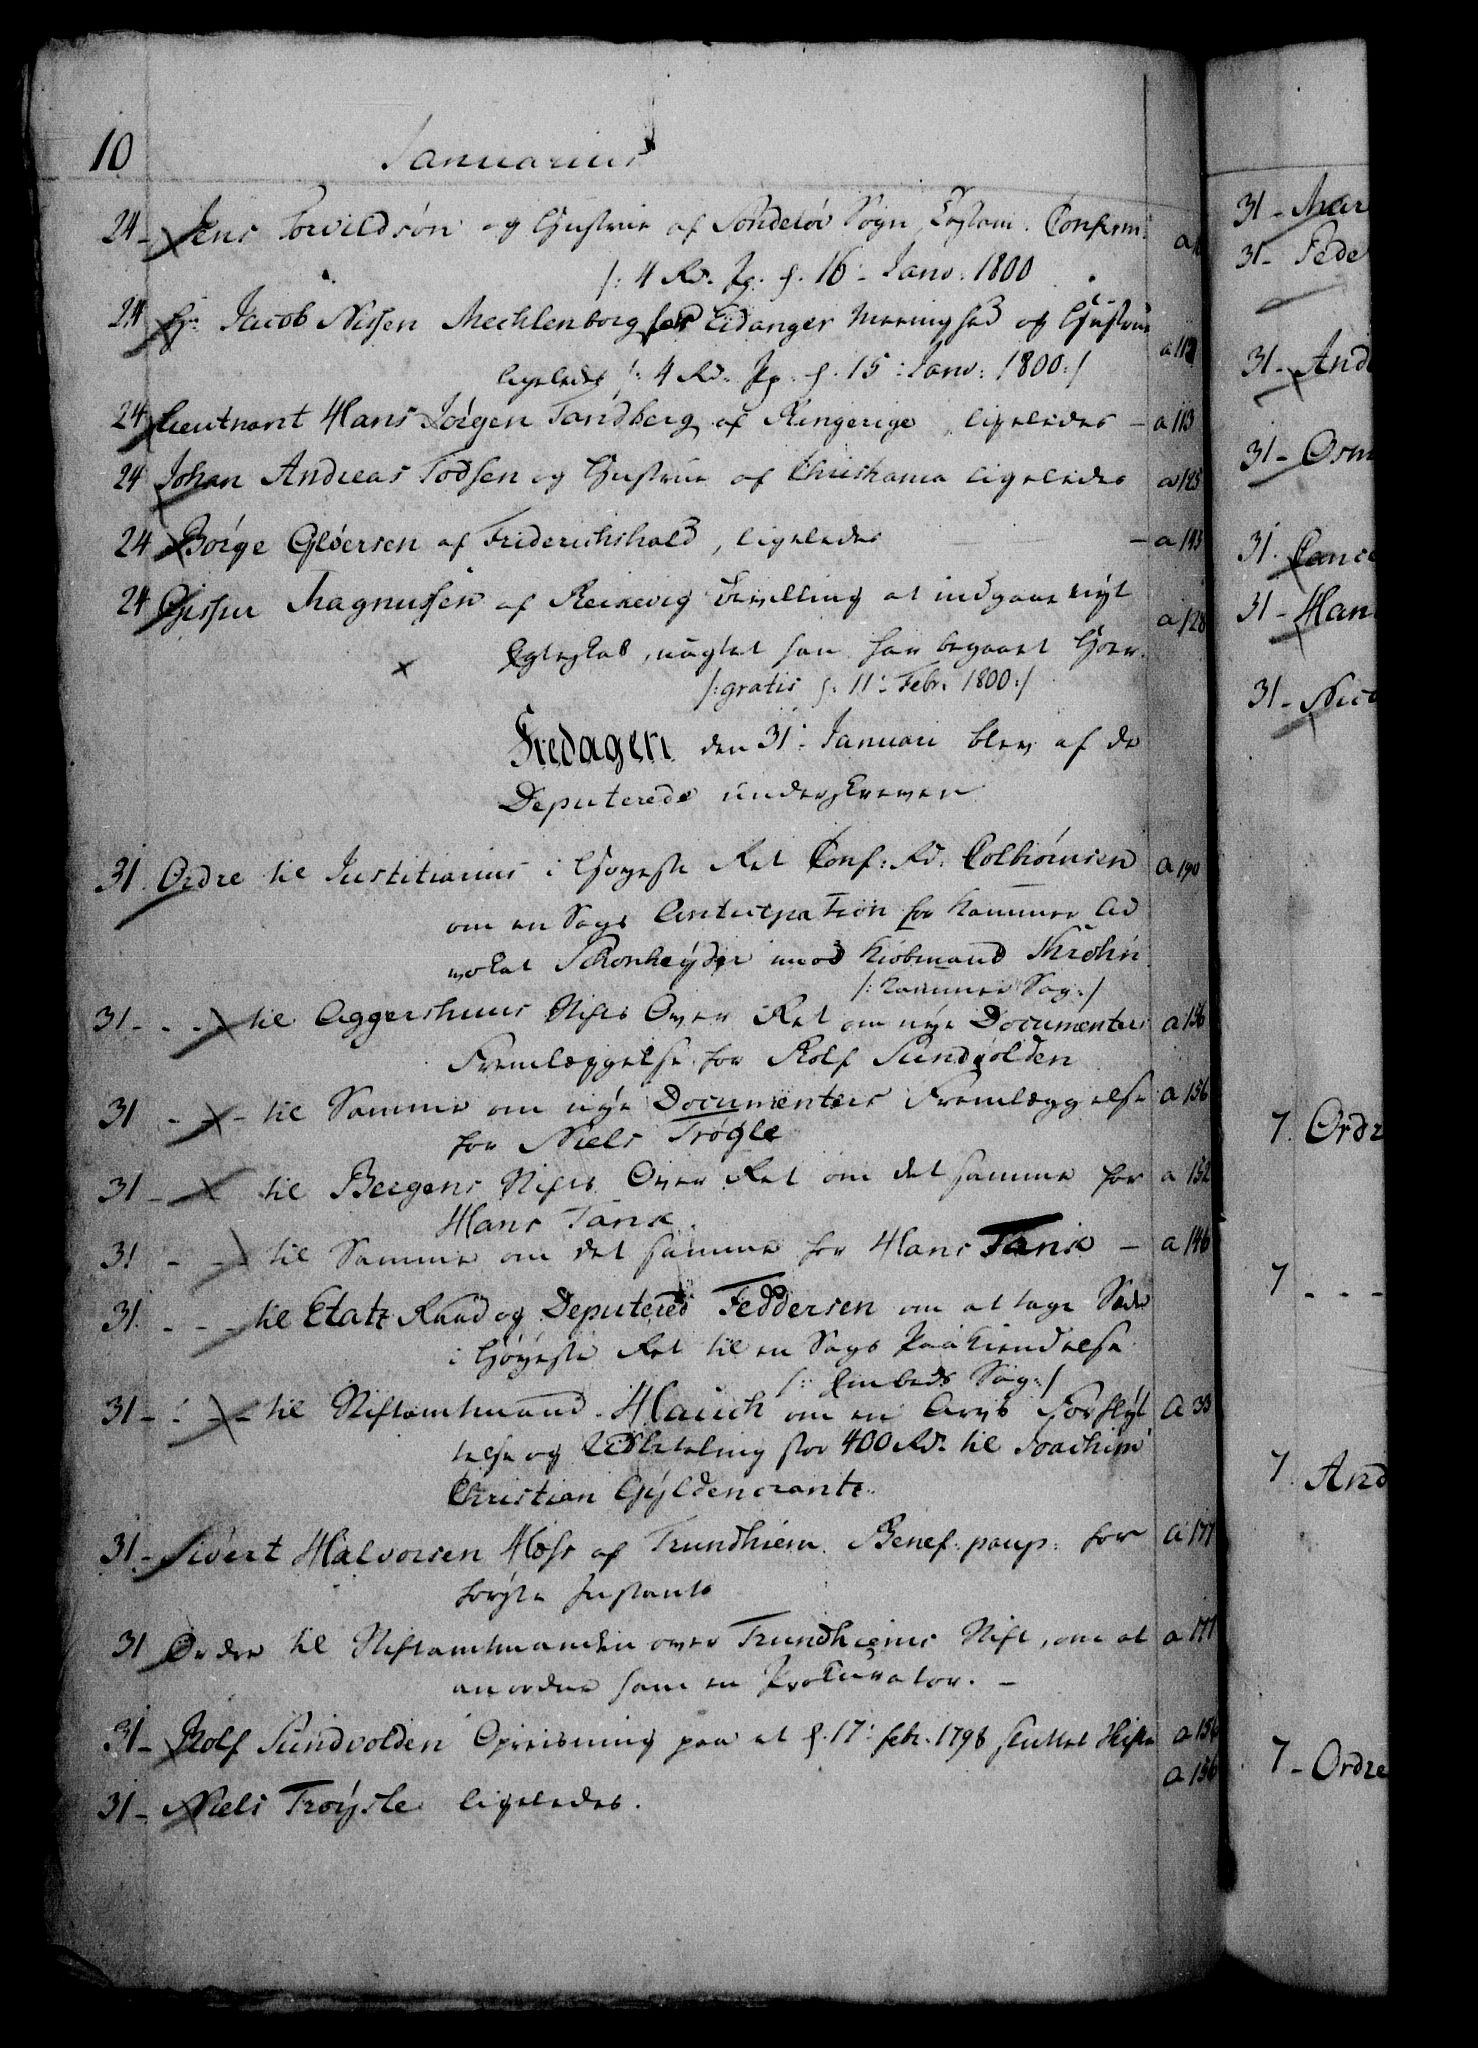 10
Januarius
24 - Jens Torvildsøn og Hustrue af Sóndeløv Sogn, Testam: Confirm:
/: 4 Rd. Pp. f. 16 - Janv: 1800
24 Hr. Jacob Nissen Mechlenborg for Eidanger Meenighed og Hustrue a 112
ligeledes /: 4 Rd. Pp. f. 15: Janv: 1800 :/
24 Lieutnant Hans Jørgen Tandberg af Ringerige ligeledes - a 113
24 Johan Andreas Todsen og Hustrue af Christiania ligeledes a 125
24 Børge Gløersen af Friderichshald, ligeledes - a 143
24 Gissur Magnussen af Reikevig Bevilling at indgaae nyt a 128
Egteskab, uagtet han har begaaet Hoer.
/: gratis f. 11: Febr: 1800 :/
Fredagen den 31: Januari blev af de
Deputerede underskreven
31. Ordre til Justitiarius i Høyeste Ret Conf: Rd: Colbiørnsen a 190
om en Sags Anticipation for Kammer Ad
vokat Schønheyder mod Kiøbmand Krohn
/: Kammer Sag :/
31 - - - til Aggershuus Stifts Over Ret om nye Documenters a 156
Fremlæggelse for Rolf Sundvolden
31 - - - til Samme om nye Documenters Fremlæggelse a 156
for Niels Trøgle
31 - til Bergens Stifts Over Ret om det samme for a 152
Hans Tank.
31 - - til Samme om det samme for Hans Tank - a 146
31. - - - til Etatz Raad og Deputered Feddersen om at tage Sæde
i Høyeste Ret til en Sags Paakiendelse
/: Embeds Sag :/
31 - - - til Stiftamtmand Hauch om en Arvs Forflyt A 33
telse og Udbetaling stor 400 Rd. til Joachim
Christian Gyldencrantz.
31 - Sivert Halvorsen Moss af Trundhiem Benef: paup: for a 177
første Instants
31 Ordre til Stiftamtmanden over Trundhiems Stift, om at a 177
anordne ham en Prokurator. -
31 - Rolf Sundvolden Opreisning paa et f. 17: febr. 1798 sluttet Skifte a 156
31 - Niels Trøgsle ligeledes. a 156
31 - Mar
31 - Pede
31 - And
31 - Osm
31. Cance
31 - Han
31 - Nic
7. Ordr
7 - - -
7. And
7 - Ordre